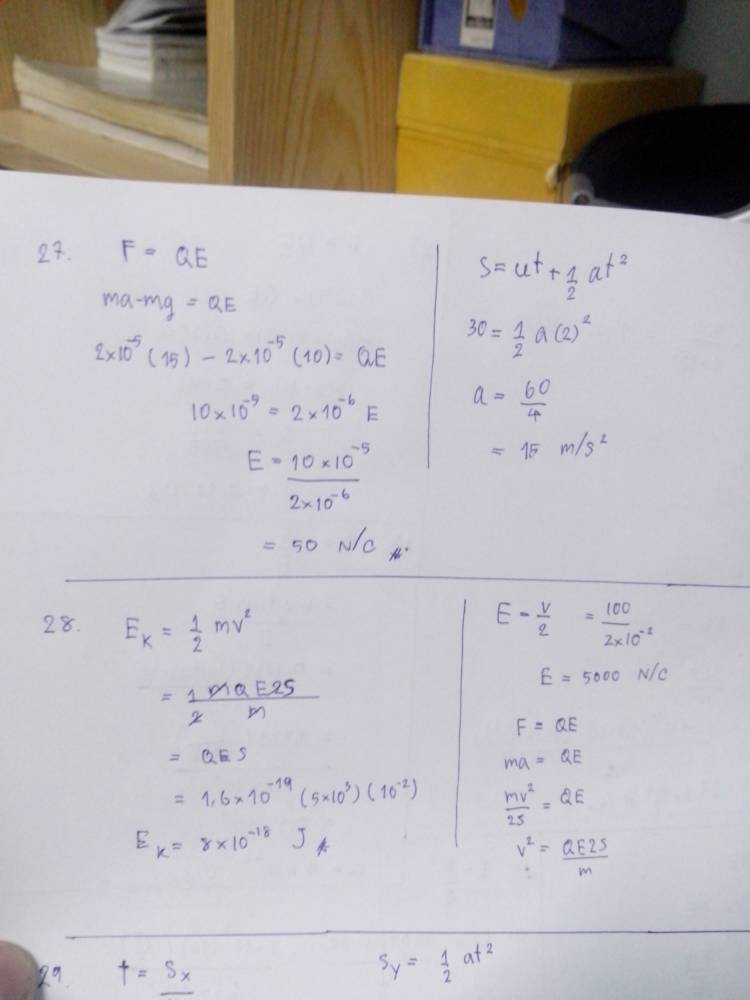 27.
F = QE
ma-mg = QE
2×10⁻⁵ (15) - 2×10⁻⁵ (10) = QE
10×10⁻⁵ = 2×10⁻⁶ E
E = 10×10⁻⁵ / 2×10⁻⁶
= 50 N/C
S = ut + 1/2 at²
30 = 1/2 a(2)²
a = 60/4
= 15 m/s²
28.
E_K = 1/2 mv²
= 1 m QE2S / 2 m
= QES
= 1,6×10⁻¹⁹ (5×10³) (10⁻²)
E_K = 8×10⁻¹⁸ J
E = V/2 = 100 / 2×10⁻²
E = 5000 N/C
F = QE
ma = QE
mv²/2S = QE
v² = QE2S/m
29.
t = Sx
Sy = 1/2 at²